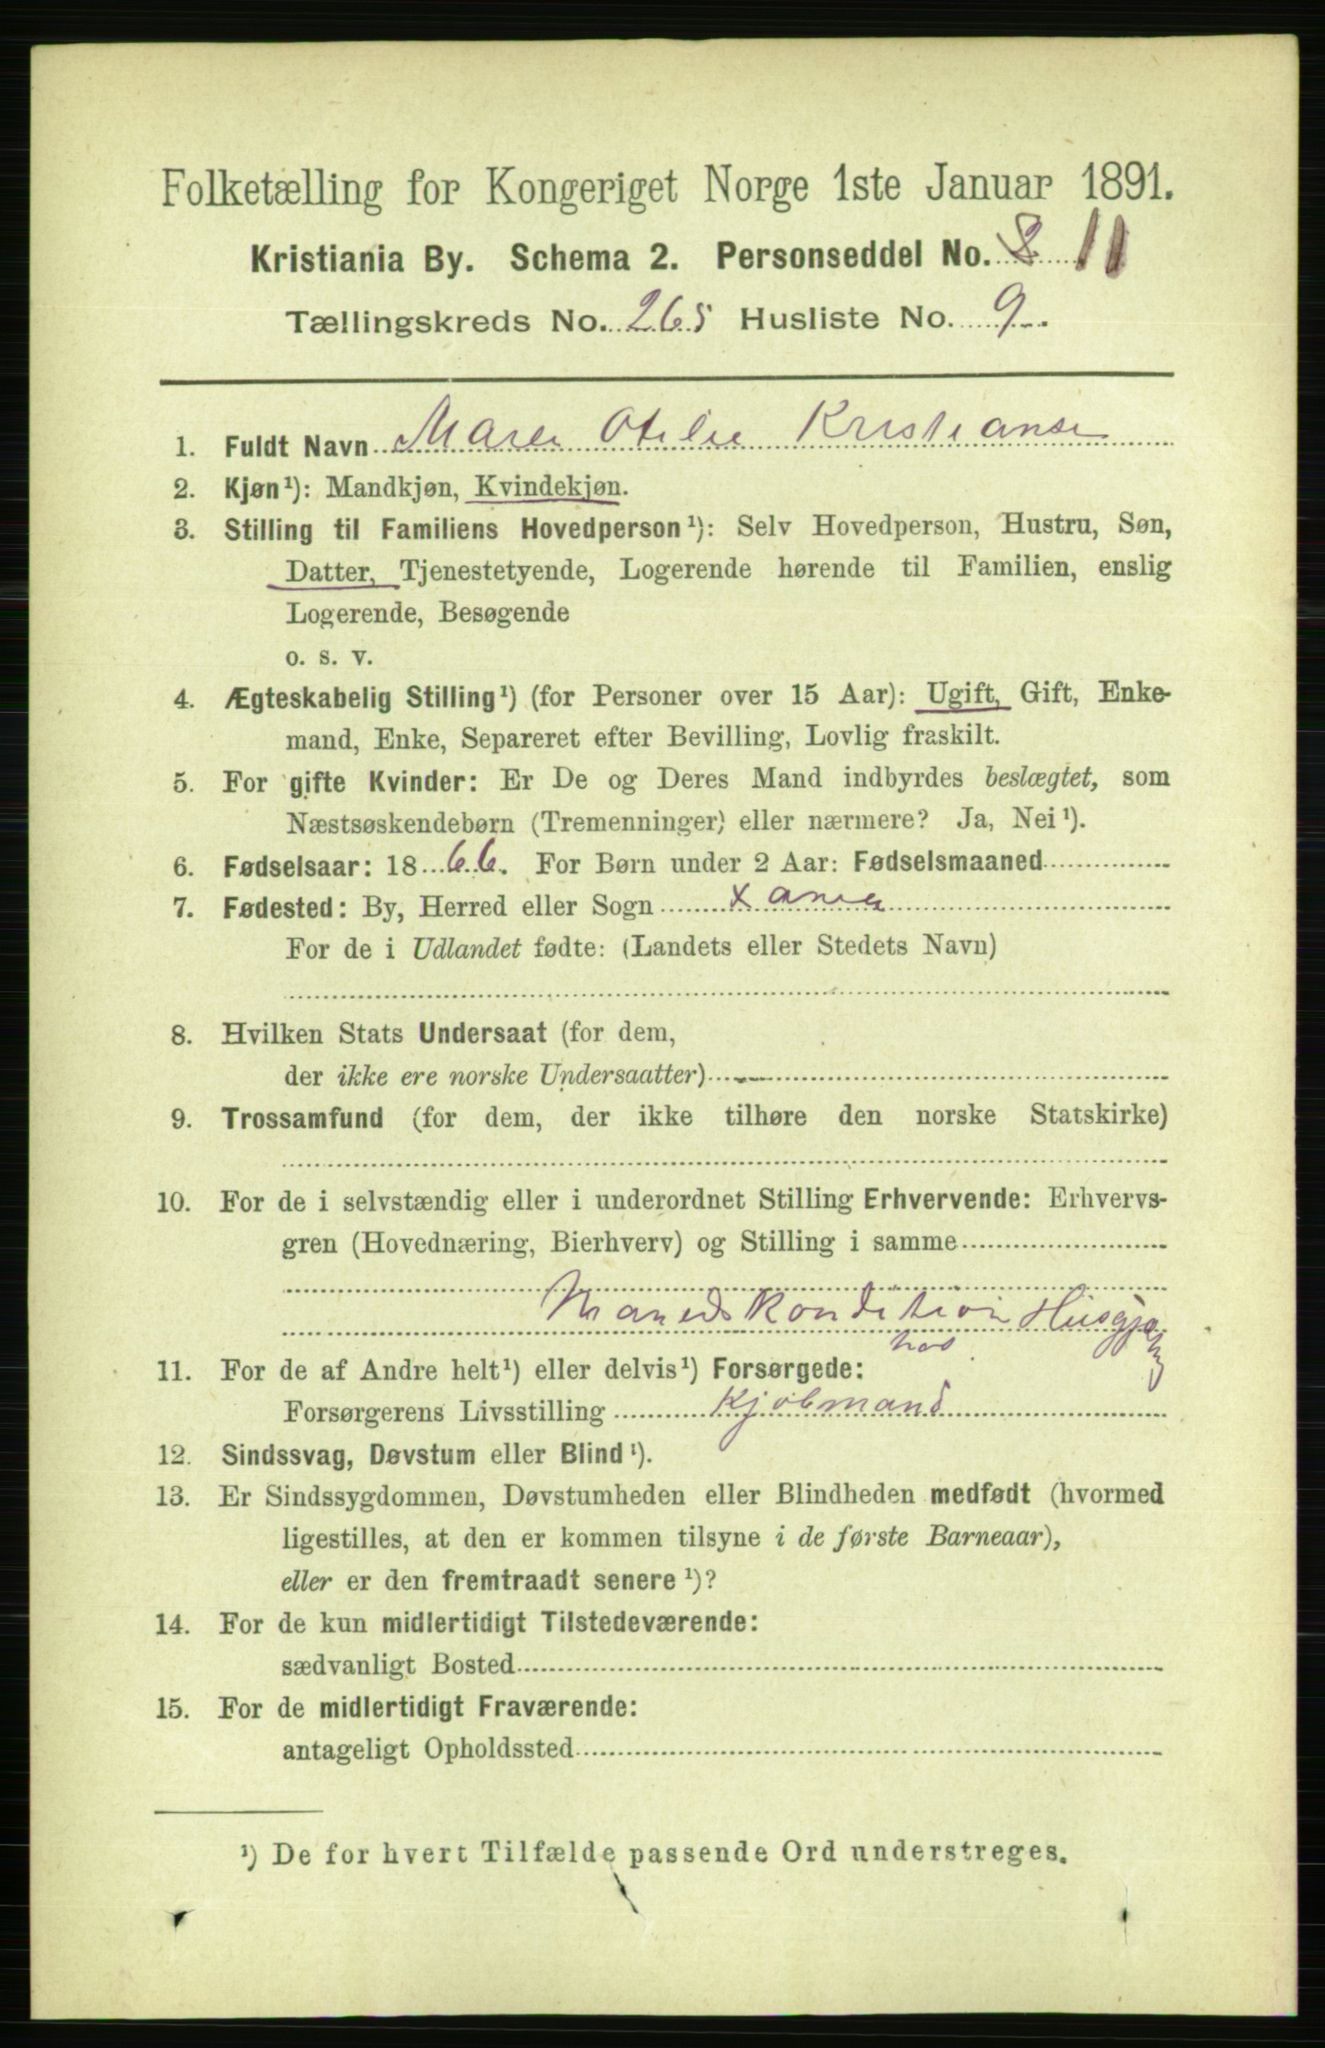 Folketælling for Kongeriget Norge 1ste Januar 1891.
Kristiania By. Schema 2. Personseddel No. 8 11
Tællingskreds No. 265 Husliste No. 9
1. Fuldt Navn Maren Otilie Kristianse
2. Kjøn¹): Mandkjøn, Kvindekjøn.
3. Stilling til Familiens Hovedperson¹): Selv Hovedperson, Hustru, Søn,
Datter, Tjenestetyende, Logerende hørende til Familien, enslig
Logerende, Besøgende
o. s. v.
4. Ægteskabelig Stilling¹) (for Personer over 15 Aar): Ugift, Gift, Enke-
mand, Enke, Separeret efter Bevilling, Lovlig fraskilt.
5. For gifte Kvinder: Er De og Deres Mand indbyrdes beslægtet, som
Næstsøskendebørn (Tremenninger) eller nærmere? Ja, Nei¹).
6. Fødselsaar: 1866. For Børn under 2 Aar: Fødselsmaaned
7. Fødested: By, Herred eller Sogn Xania
For de i Udlandet fødte: (Landets eller Stedets Navn)
8. Hvilken Stats Undersaat (for dem,
der ikke ere norske Undersaatter)
9. Trossamfund (for dem, der ikke tilhøre den norske Statskirke)
10. For de i selvstændig eller i underordnet Stilling Erhvervende: Erhvervs-
gren (Hovednæring, Bierhverv) og Stilling i samme
Manedskondition Husgjer
hos
11. For de af Andre helt¹) eller delvis¹) Forsørgede:
Forsørgerens Livsstilling Kjøbmand
12. Sindssvag, Døvstum eller Blind¹).
13. Er Sindssygdommen, Døvstumheden eller Blindheden medfødt (hvormed
ligestilles, at den er kommen tilsyne i de første Barneaar),
eller er den fremtraadt senere¹)?
14. For de kun midlertidigt Tilstedeværende:
sædvanligt Bosted
15. For de midlertidigt Fraværende:
antageligt Opholdssted
¹) De for hvert Tilfælde passende Ord understreges.